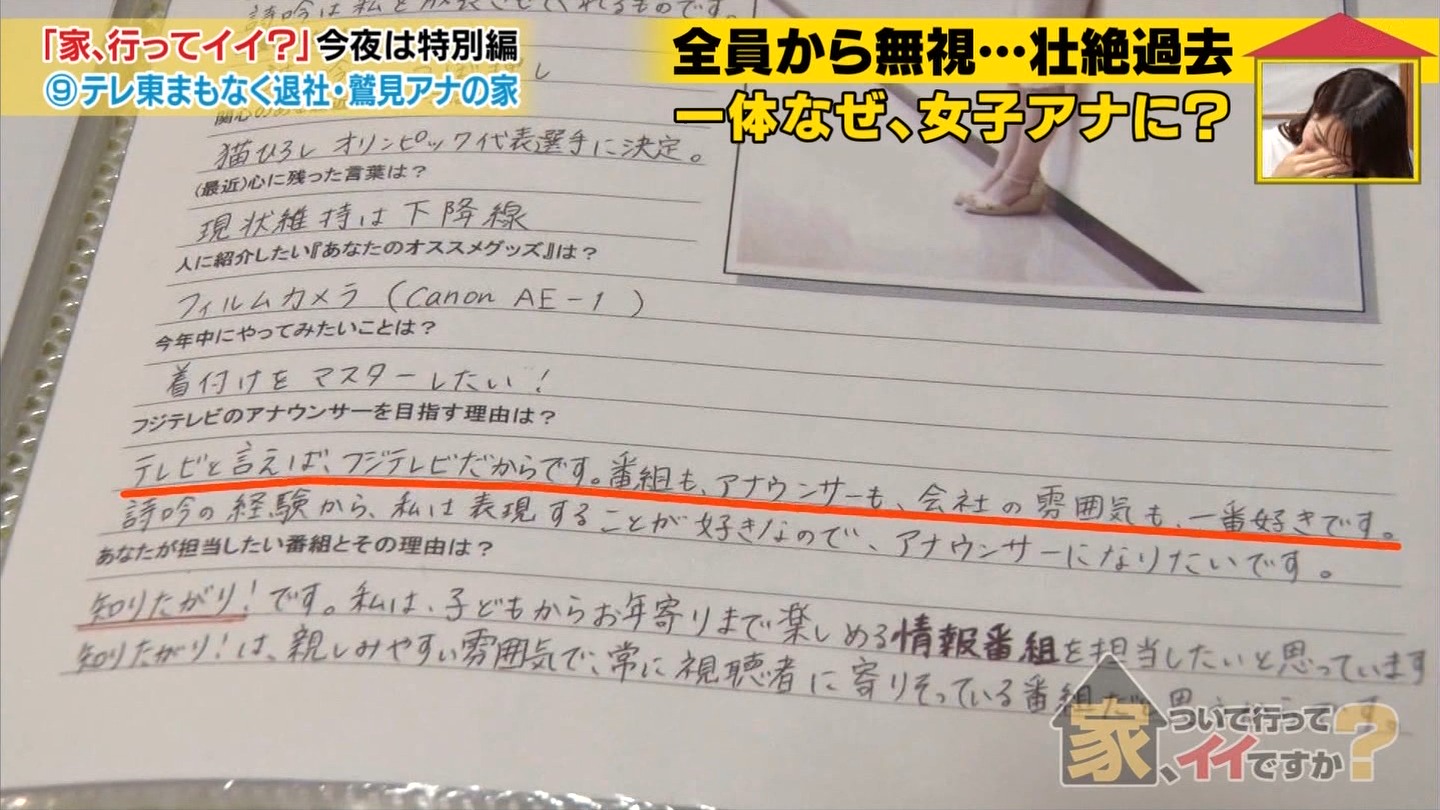 「家、行ってイイ?」今夜は特別編
⑨テレ東まもなく退社・鷲見アナの家
全員から無視…壮絶過去
一体なぜ、女子アナに?
詩吟は私を成長させてくれるものです。
猫ひろし オリンピック代表選手に決定。
(最近)心に残った言葉は?
現状維持は下降線
人に紹介したい『あなたのオススメグッズ』は?
フィルムカメラ (Canon AE-1)
今年中にやってみたいことは?
着付けをマスターしたい!
フジテレビのアナウンサーを目指す理由は?
テレビと言えば、フジテレビだからです。番組も、アナウンサーも、会社の雰囲気も、一番好きです。
詩吟の経験から、私は表現することが好きなので、アナウンサーになりたいです。
あなたが担当したい番組とその理由は?
知りたがり!です。私は、子どもからお年寄りまで楽しめる情報番組を担当したいと思っています
知りたがり!は、親しみやすい雰囲気で、常に視聴者に寄りそっている番組だと思
家、ついて行ってイイですか?